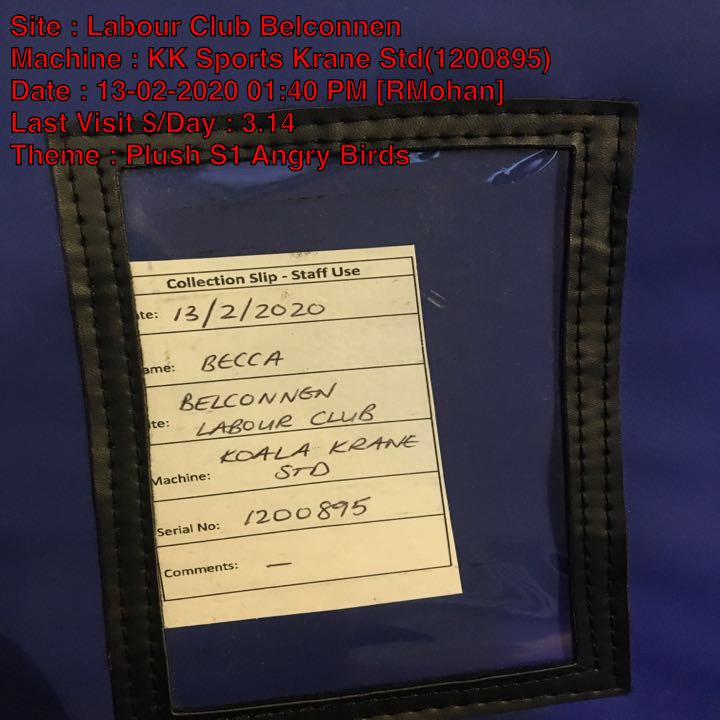 Site : Labour Club Belconnen
Machine : KK Sports Krane Std(1200895)
Date : 13-02-2020 01:40 PM [RMohan]
Last Visit $/Day : 3.14
Theme : Plush S1 Angry Birds
Collection Slip - Staff Use
te: 13/2/2020
ame: BECCA
BELCONNEN
te: LABOUR CLUB
KOALA KRANE
Machine: STD
Serial No: 1200895
Comments: —